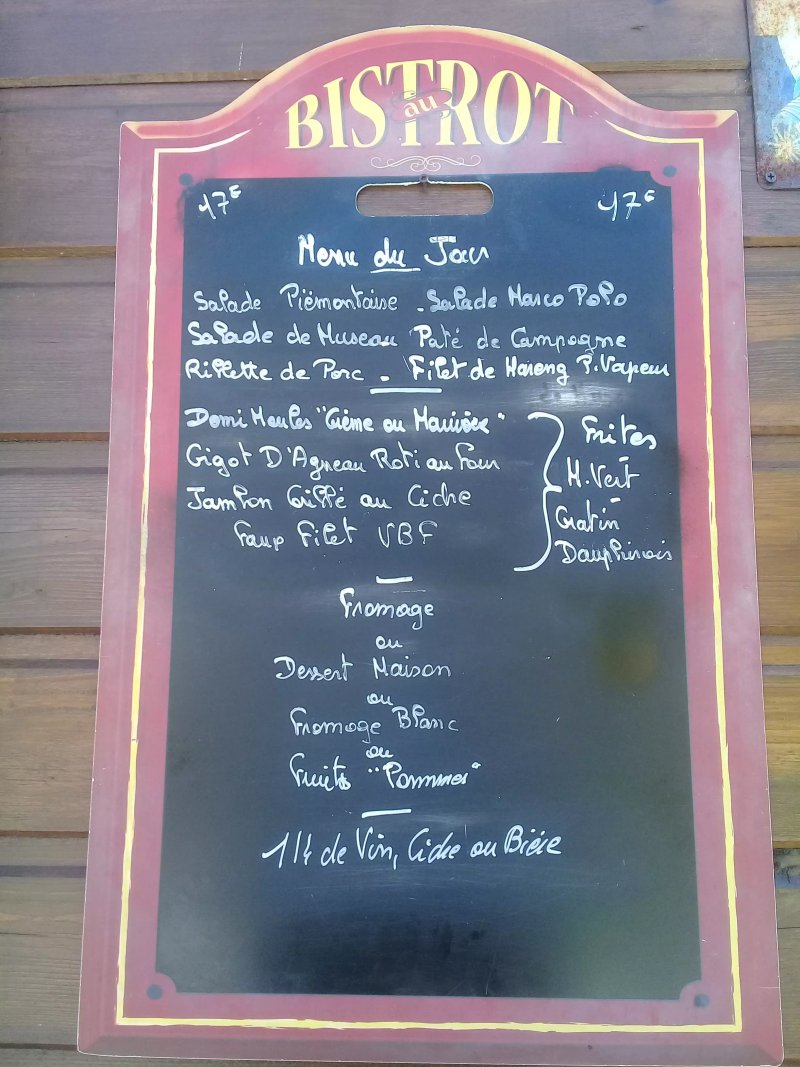 BISTROT
au
17€ 17€
Menu du Jour
Salade Piémontaise - Salade Marco Polo
Salade de Museau Paté de Campagne
Rillette de Porc - Filet de Hareng P. Vapeur
Demi Moules "Crème ou Marinière"
Gigot D'Agneau Roti au Four
Jambon Grillé au Cidre
Faup Filet VBF
Frites
-
H. Vert
-
Gratin
Dauphinois
Fromage
ou
Dessert Maison
ou
Fromage Blanc
ou
Fruits "Pommes"
1/4 de Vin, Cidre ou Bière